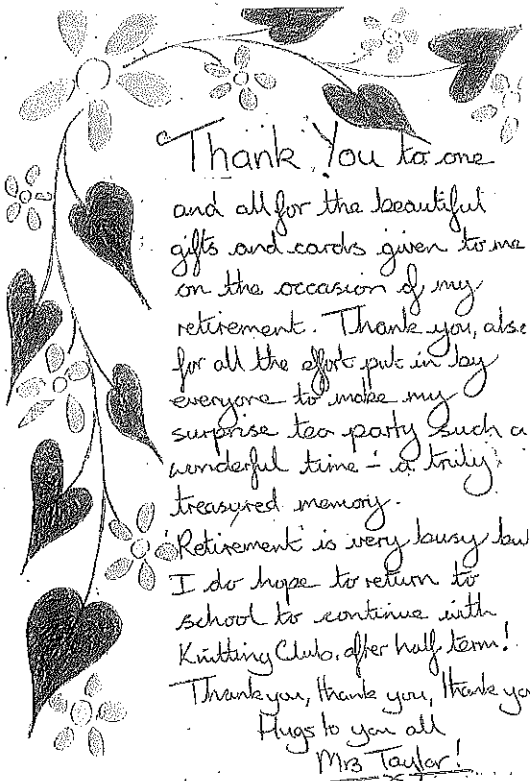 Thank You to one
and all for the beautiful
gifts and cards given to me
on the occasion of my
retirement. Thank you, also
for all the effort put in by
everyone to make my
surprise tea party such a
wonderful time - a truly
treasured memory.
'Retirement' is very busy but
I do hope to return to
school to continue with
Knitting Club, after half term!
Thank you, thank you, thank you
Hugs to you all
Mrs Taylor!